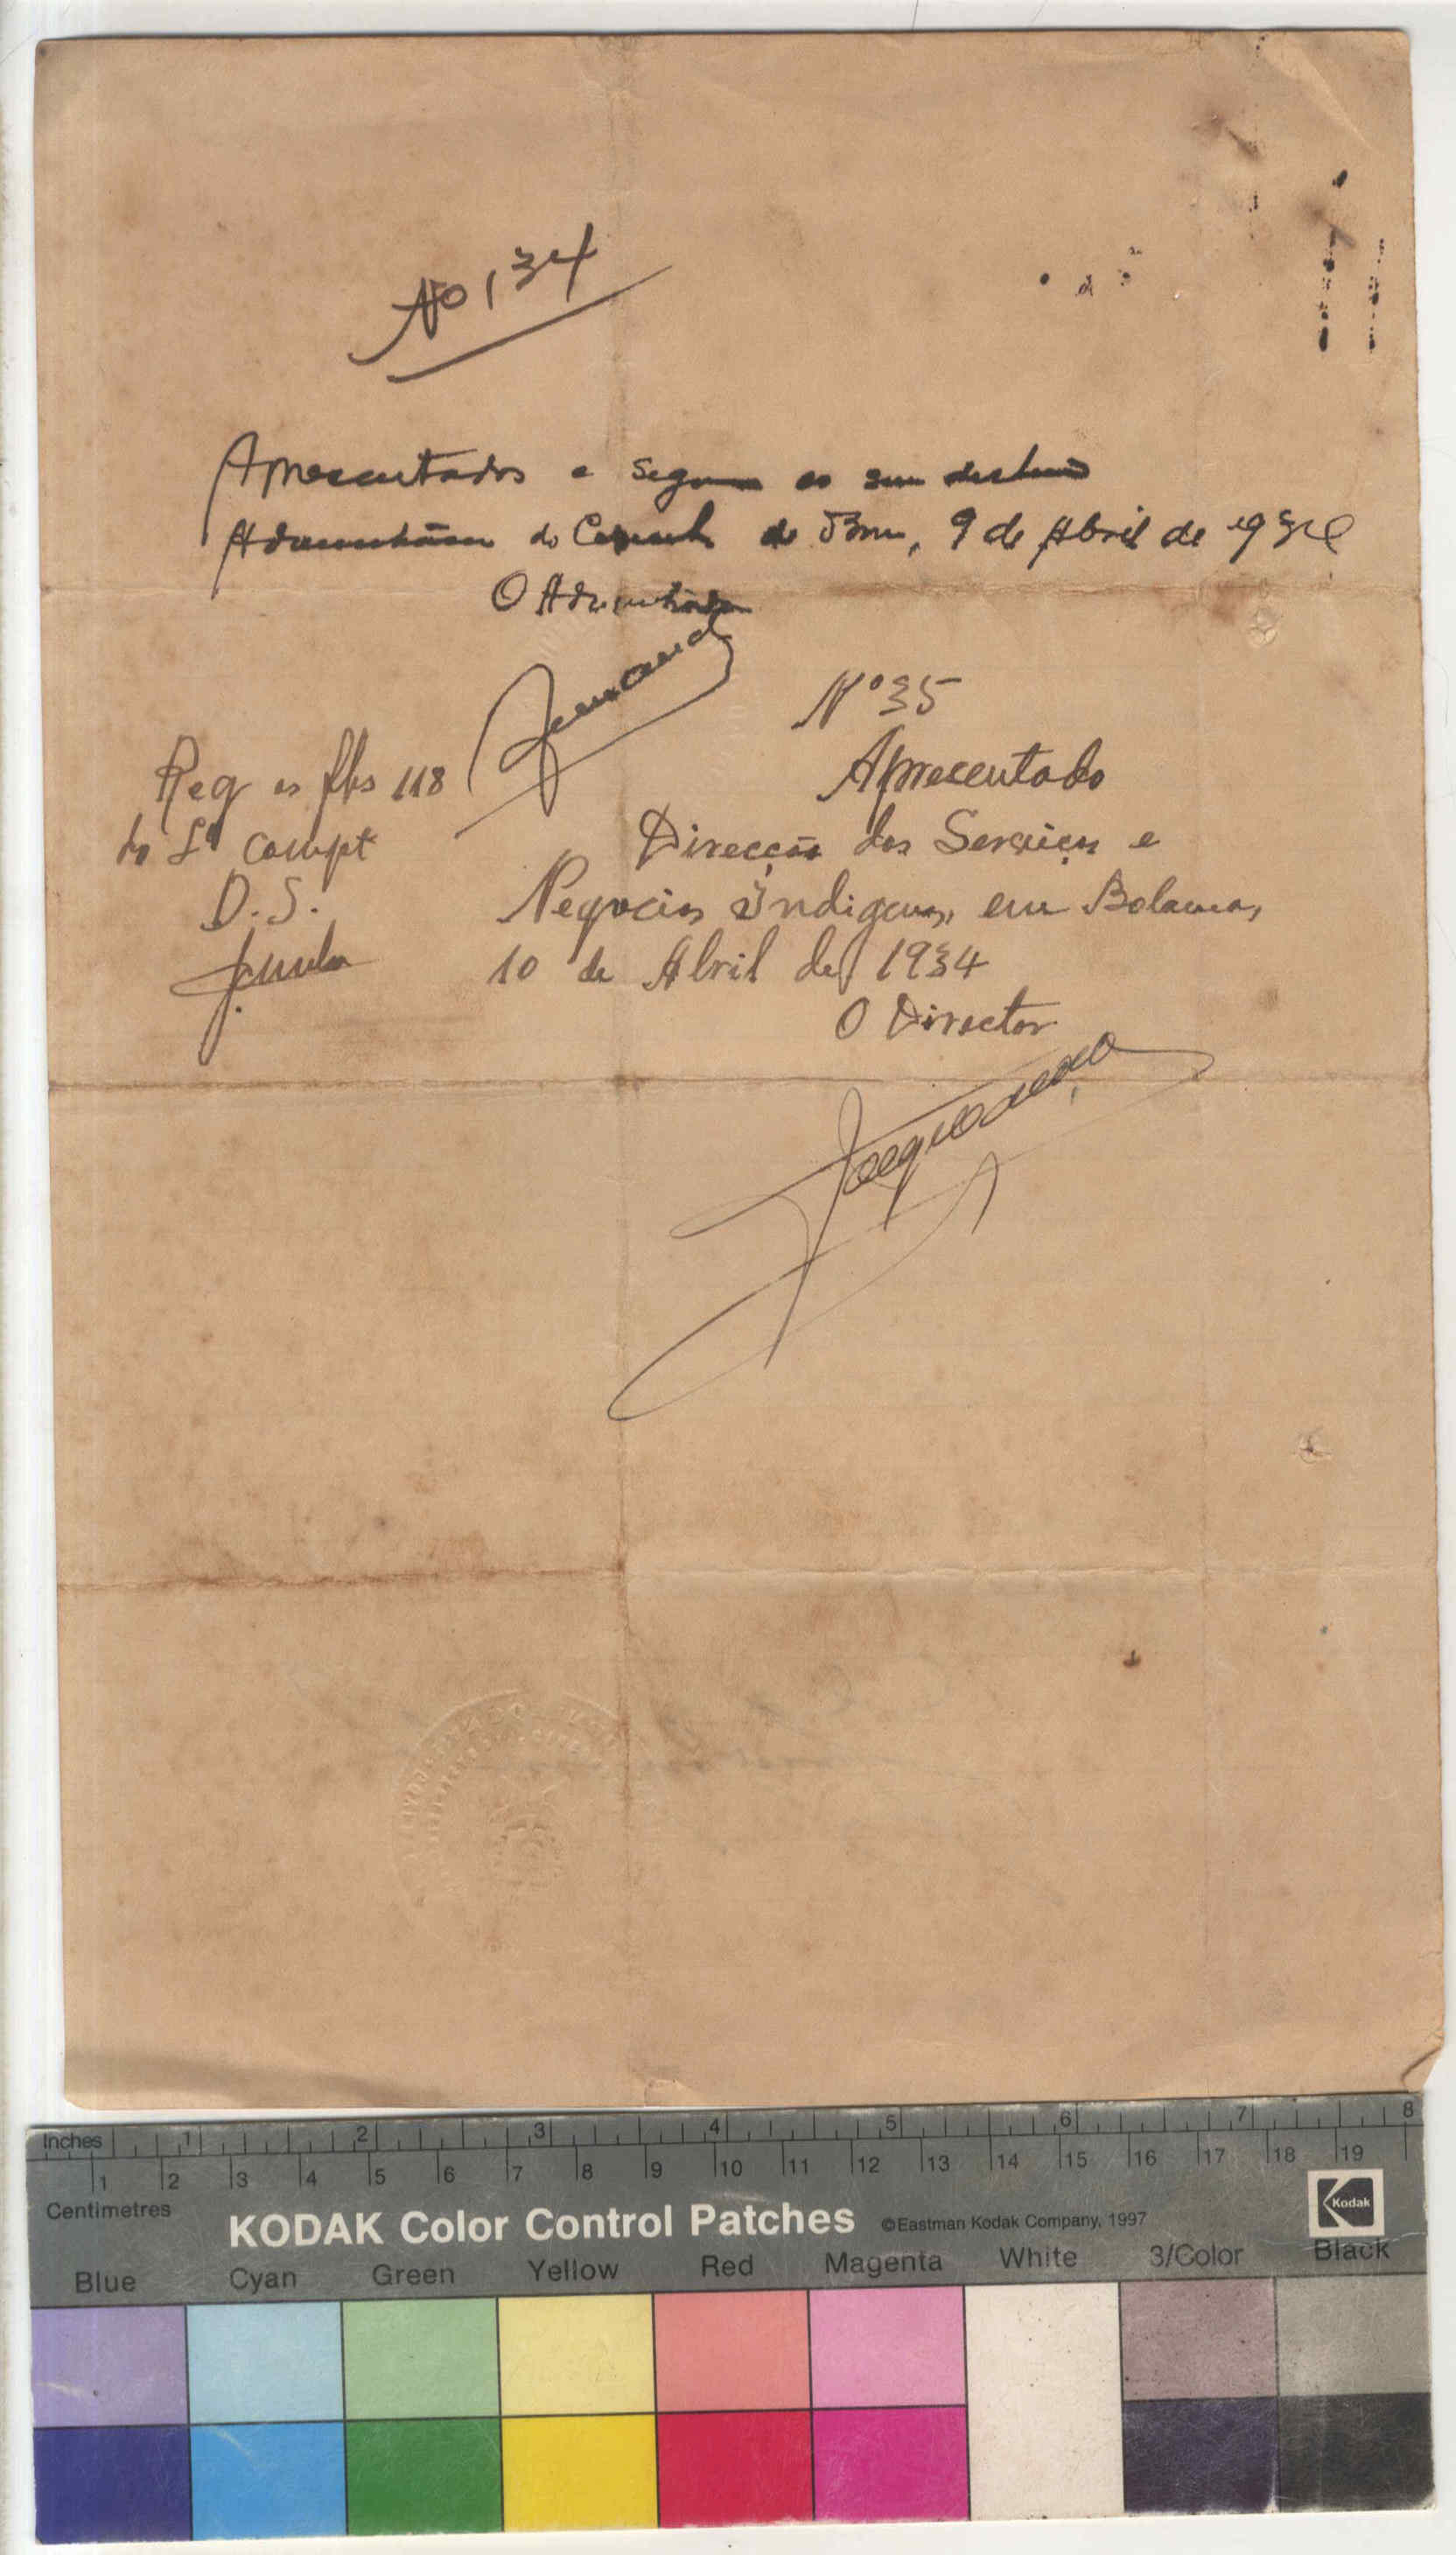 Nº 134
Apresentados e seguem ao seu destino
Administração do Concelho de 9 de Abril de 1934
O Administrador
Nº 35
Apresentado
Direcção dos Serviços e
Negocios Indigenas, em Bolama,
10 de Abril de 1934
O Director
Reg as fls 118
do Lº compt
D.S.
Inches 1 2 3 4 5 6 7 8
1 2 3 4 5 6 7 8 9 10 11 12 13 14 15 16 17 18 19
Centimetres
KODAK Color Control Patches ©Eastman Kodak Company, 1997 Kodak
Blue Cyan Green Yellow Red Magenta White 3/Color Black